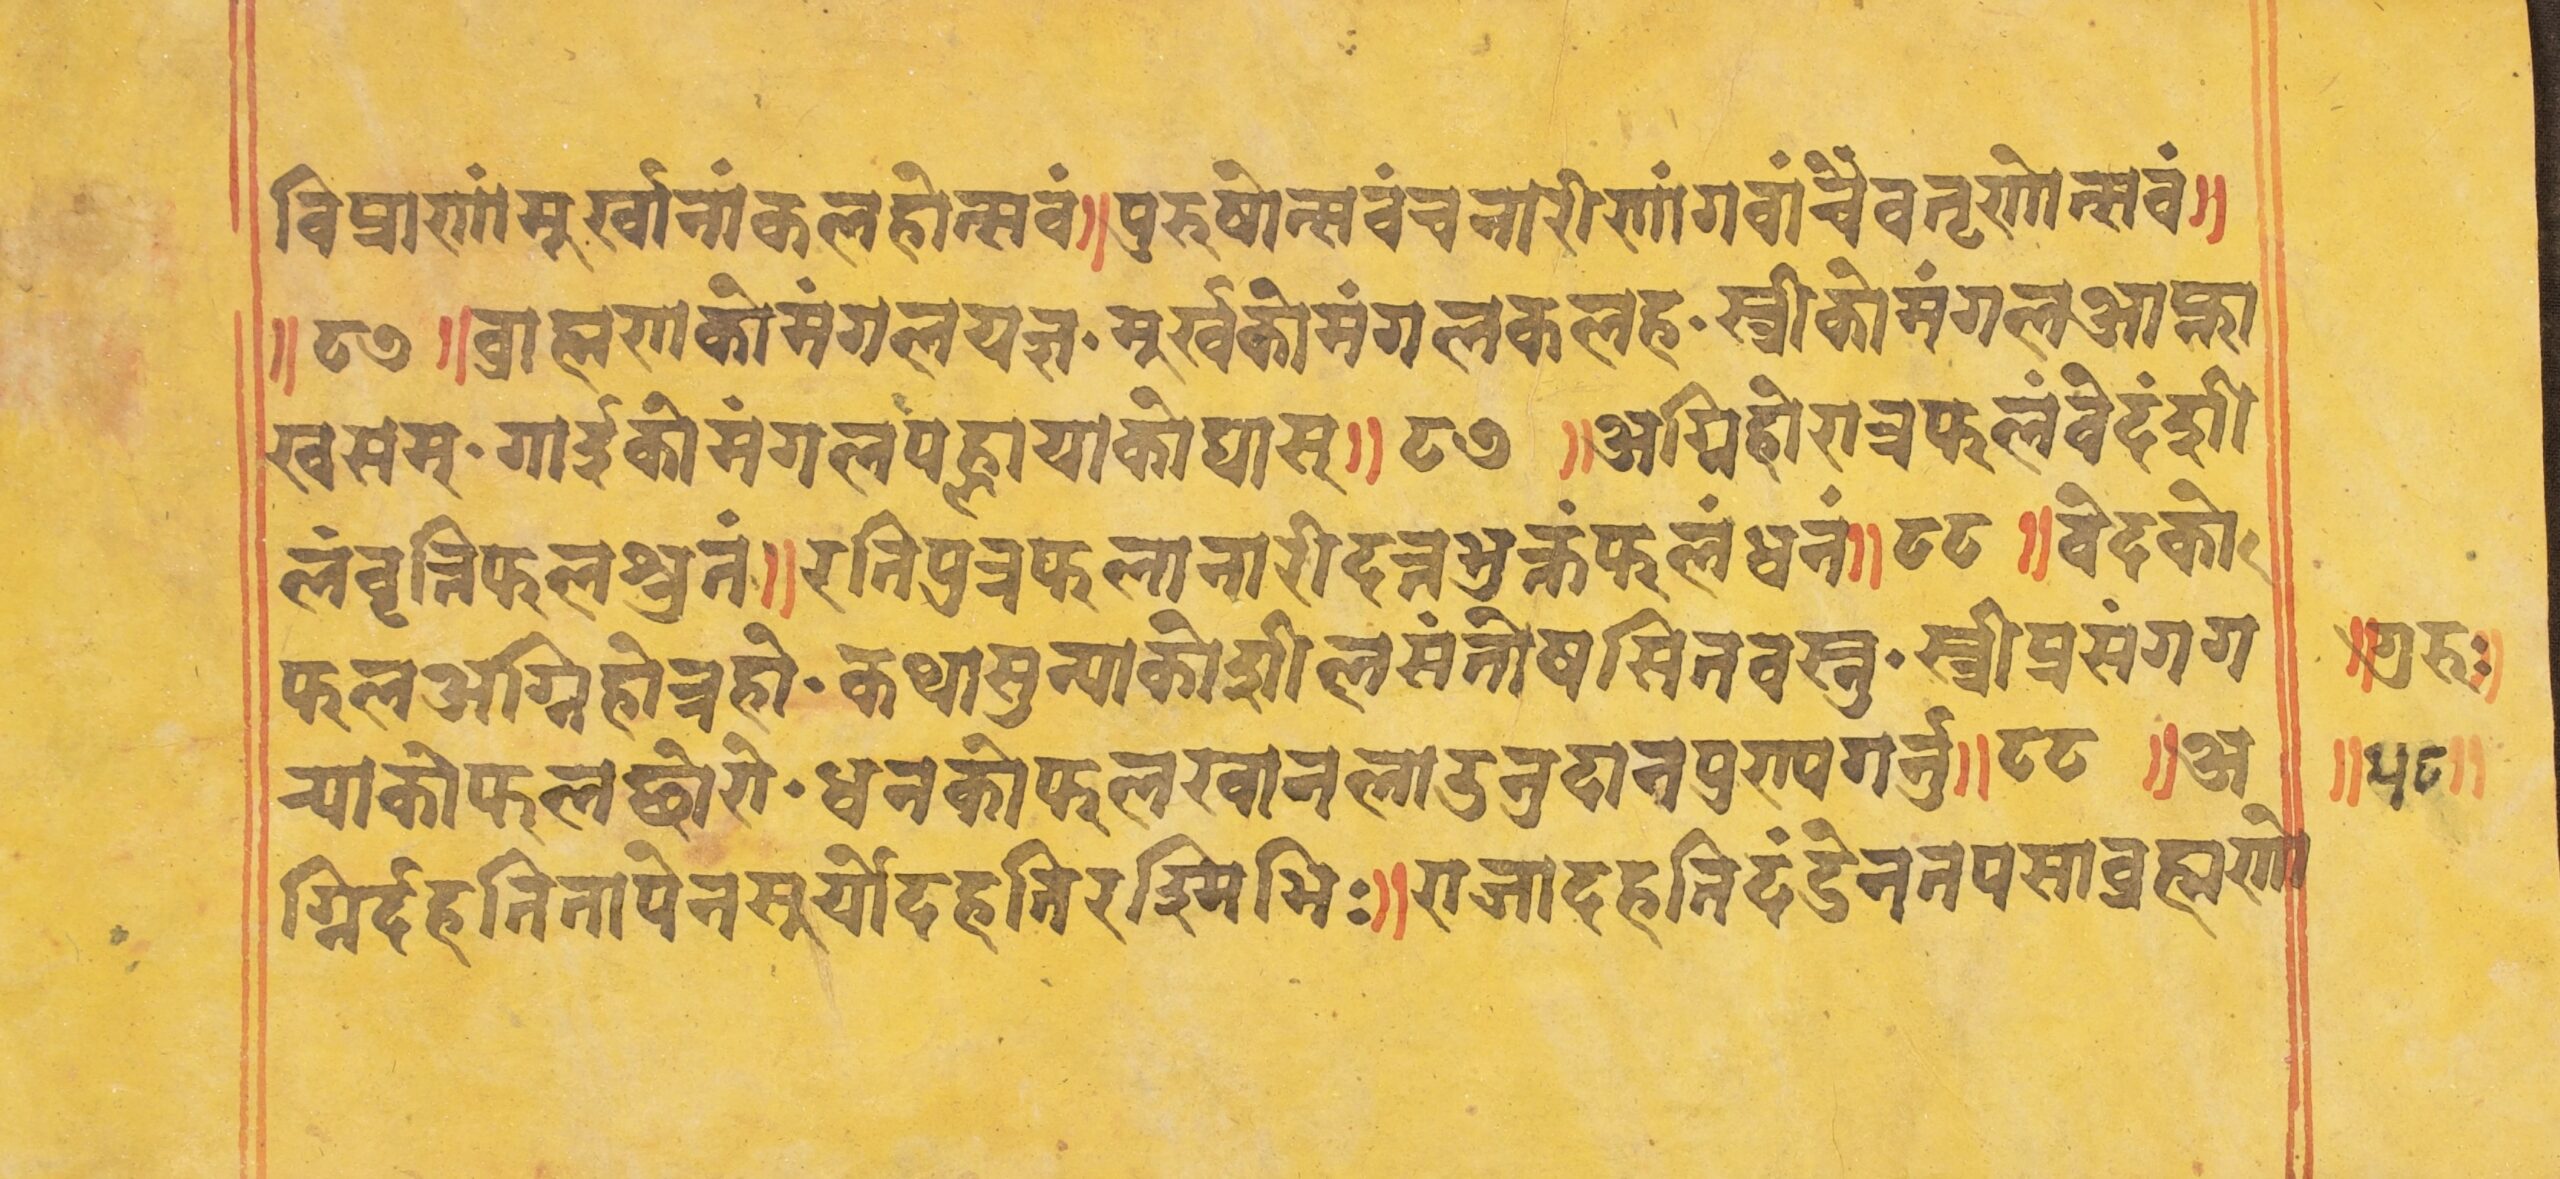 विप्राणांमूर्खानांकलहोत्सवं॥पुरुषोत्सवंचनारीणांगवांचैवतृणोत्सवं॥
॥८७॥व्राह्मणकोमंगलयज्ञ·मूर्खकोमंगलकलह·स्त्रीकोमंगलआफ्ना
खसम्·गाईकोमंगलपह्रायाकोघास्॥८७॥अग्निहोरात्रफलंवेदंशी
लंवृत्तिफलश्रुतं॥रतिपुत्रफलानारीदत्तभुक्तंफलंधनं॥८८॥वेदको
फलअग्निहोत्रहो·कथासुन्याकोशीलसंतोषसितवस्तु·स्त्रीप्रसंगग
न्याकोफलछोरो·धनकोफलखानलाउनुदानपुण्यगर्नु॥८८॥अ
ग्निर्दहतितापेनसूर्योदहतिरश्मिभिः॥राजादहतिदंडेनतपसाव्रह्मणो
॥गुरुः॥
॥५८॥